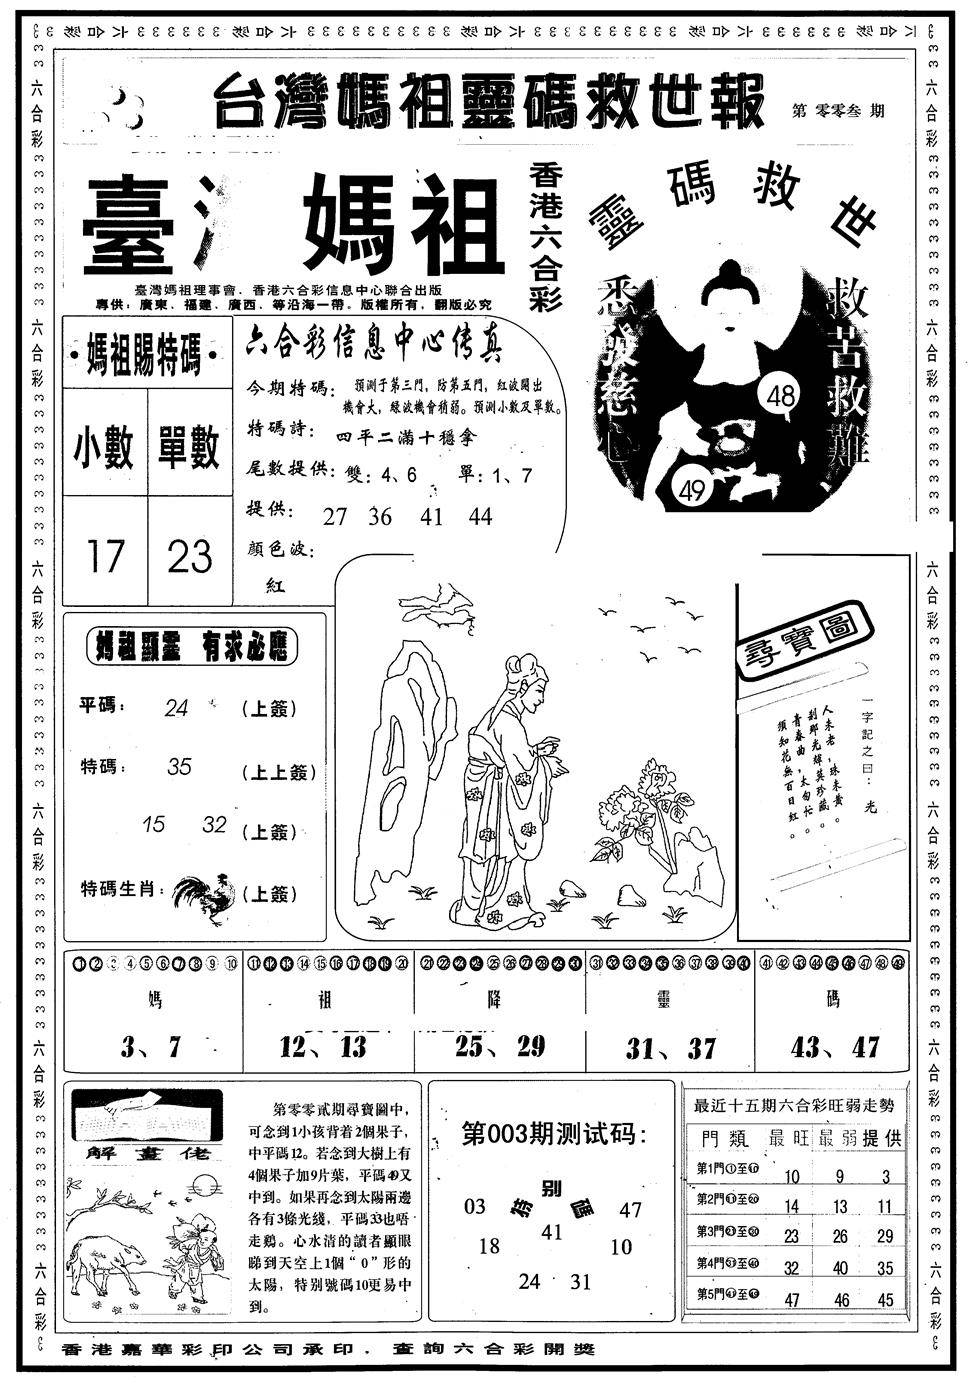 台灣媽祖靈碼救世報
第 零零叁 期
臺 媽祖
香港六合彩
靈碼救世
悉發慈心
救苦救難
48
49
臺灣媽祖理事會．香港六合彩信息中心聯合出版
專供：廣東．福建．廣西．等沿海一帶。版權所有，翻版必究
·媽祖賜特碼·
小數 單數
17 23
六合彩信息中心传真
今期特碼：預測于第三門，防第五門，紅波開出
機會大，綠波機會稍弱。預測小數及單數。
特碼詩：四平二滿十穩拿
尾數提供：雙：4、6 單：1、7
提供： 27 36 41 44
顏色波：
紅
媽祖顯靈 有求必應
平碼： 24 （上簽）
特碼： 35 （上上簽）
15 32 （上簽）
特碼生肖： （上簽）
尋寶圖
一字記之曰：光
人未老，珠未黃，
剎那光輝莫珍藏。
青春曲，太匆忙。
須知花無百日紅。
①②③④⑤⑥⑦⑧⑨⑩
⑪⑫⑬⑭⑮⑯⑰⑱⑲⑳
㉑㉒㉓㉔㉕㉖㉗㉘㉙㉚
㉛㉜㉝㉞㉟㊱㊲㊳㊴㊵
㊶㊷㊸㊹㊺㊻㊼㊽㊾
媽 祖 降 靈 碼
3、7 12、13 25、29 31、37 43、47
解畫佬
第零零貳期尋寶圖中，
可念到1小孩背着2個果子，
中平碼12。若念到大樹上有
4個果子加9片葉，平碼49又
中到。如果再念到太陽兩邊
各有3條光綫，平碼33也唔
走鷄。心水清的讀者顯眼
睇到天空上1個“0”形的
太陽，特别號碼10更易中
到。
第003期测试码：
03 特 别 圖 47
18 41 10
24 31
最近十五期六合彩旺弱走勢
門類 最旺 最弱 提供
第1門①至⑩ 10 9 3
第2門⑪至⑳ 14 13 11
第3門㉑至㉚ 23 26 29
第4門㉛至㊵ 32 40 35
第5門㊶至㊾ 47 46 45
香港嘉華彩印公司承印．查詢六合彩開獎